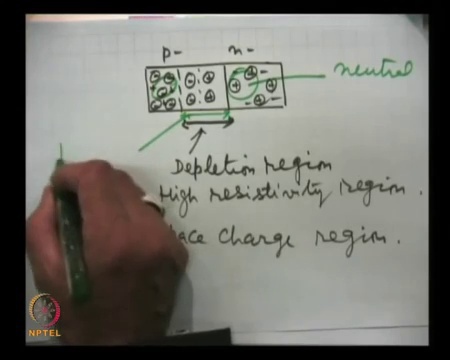 p- n-
neutral
Depletion region
High resistivity region.
Charge region.
NPTEL